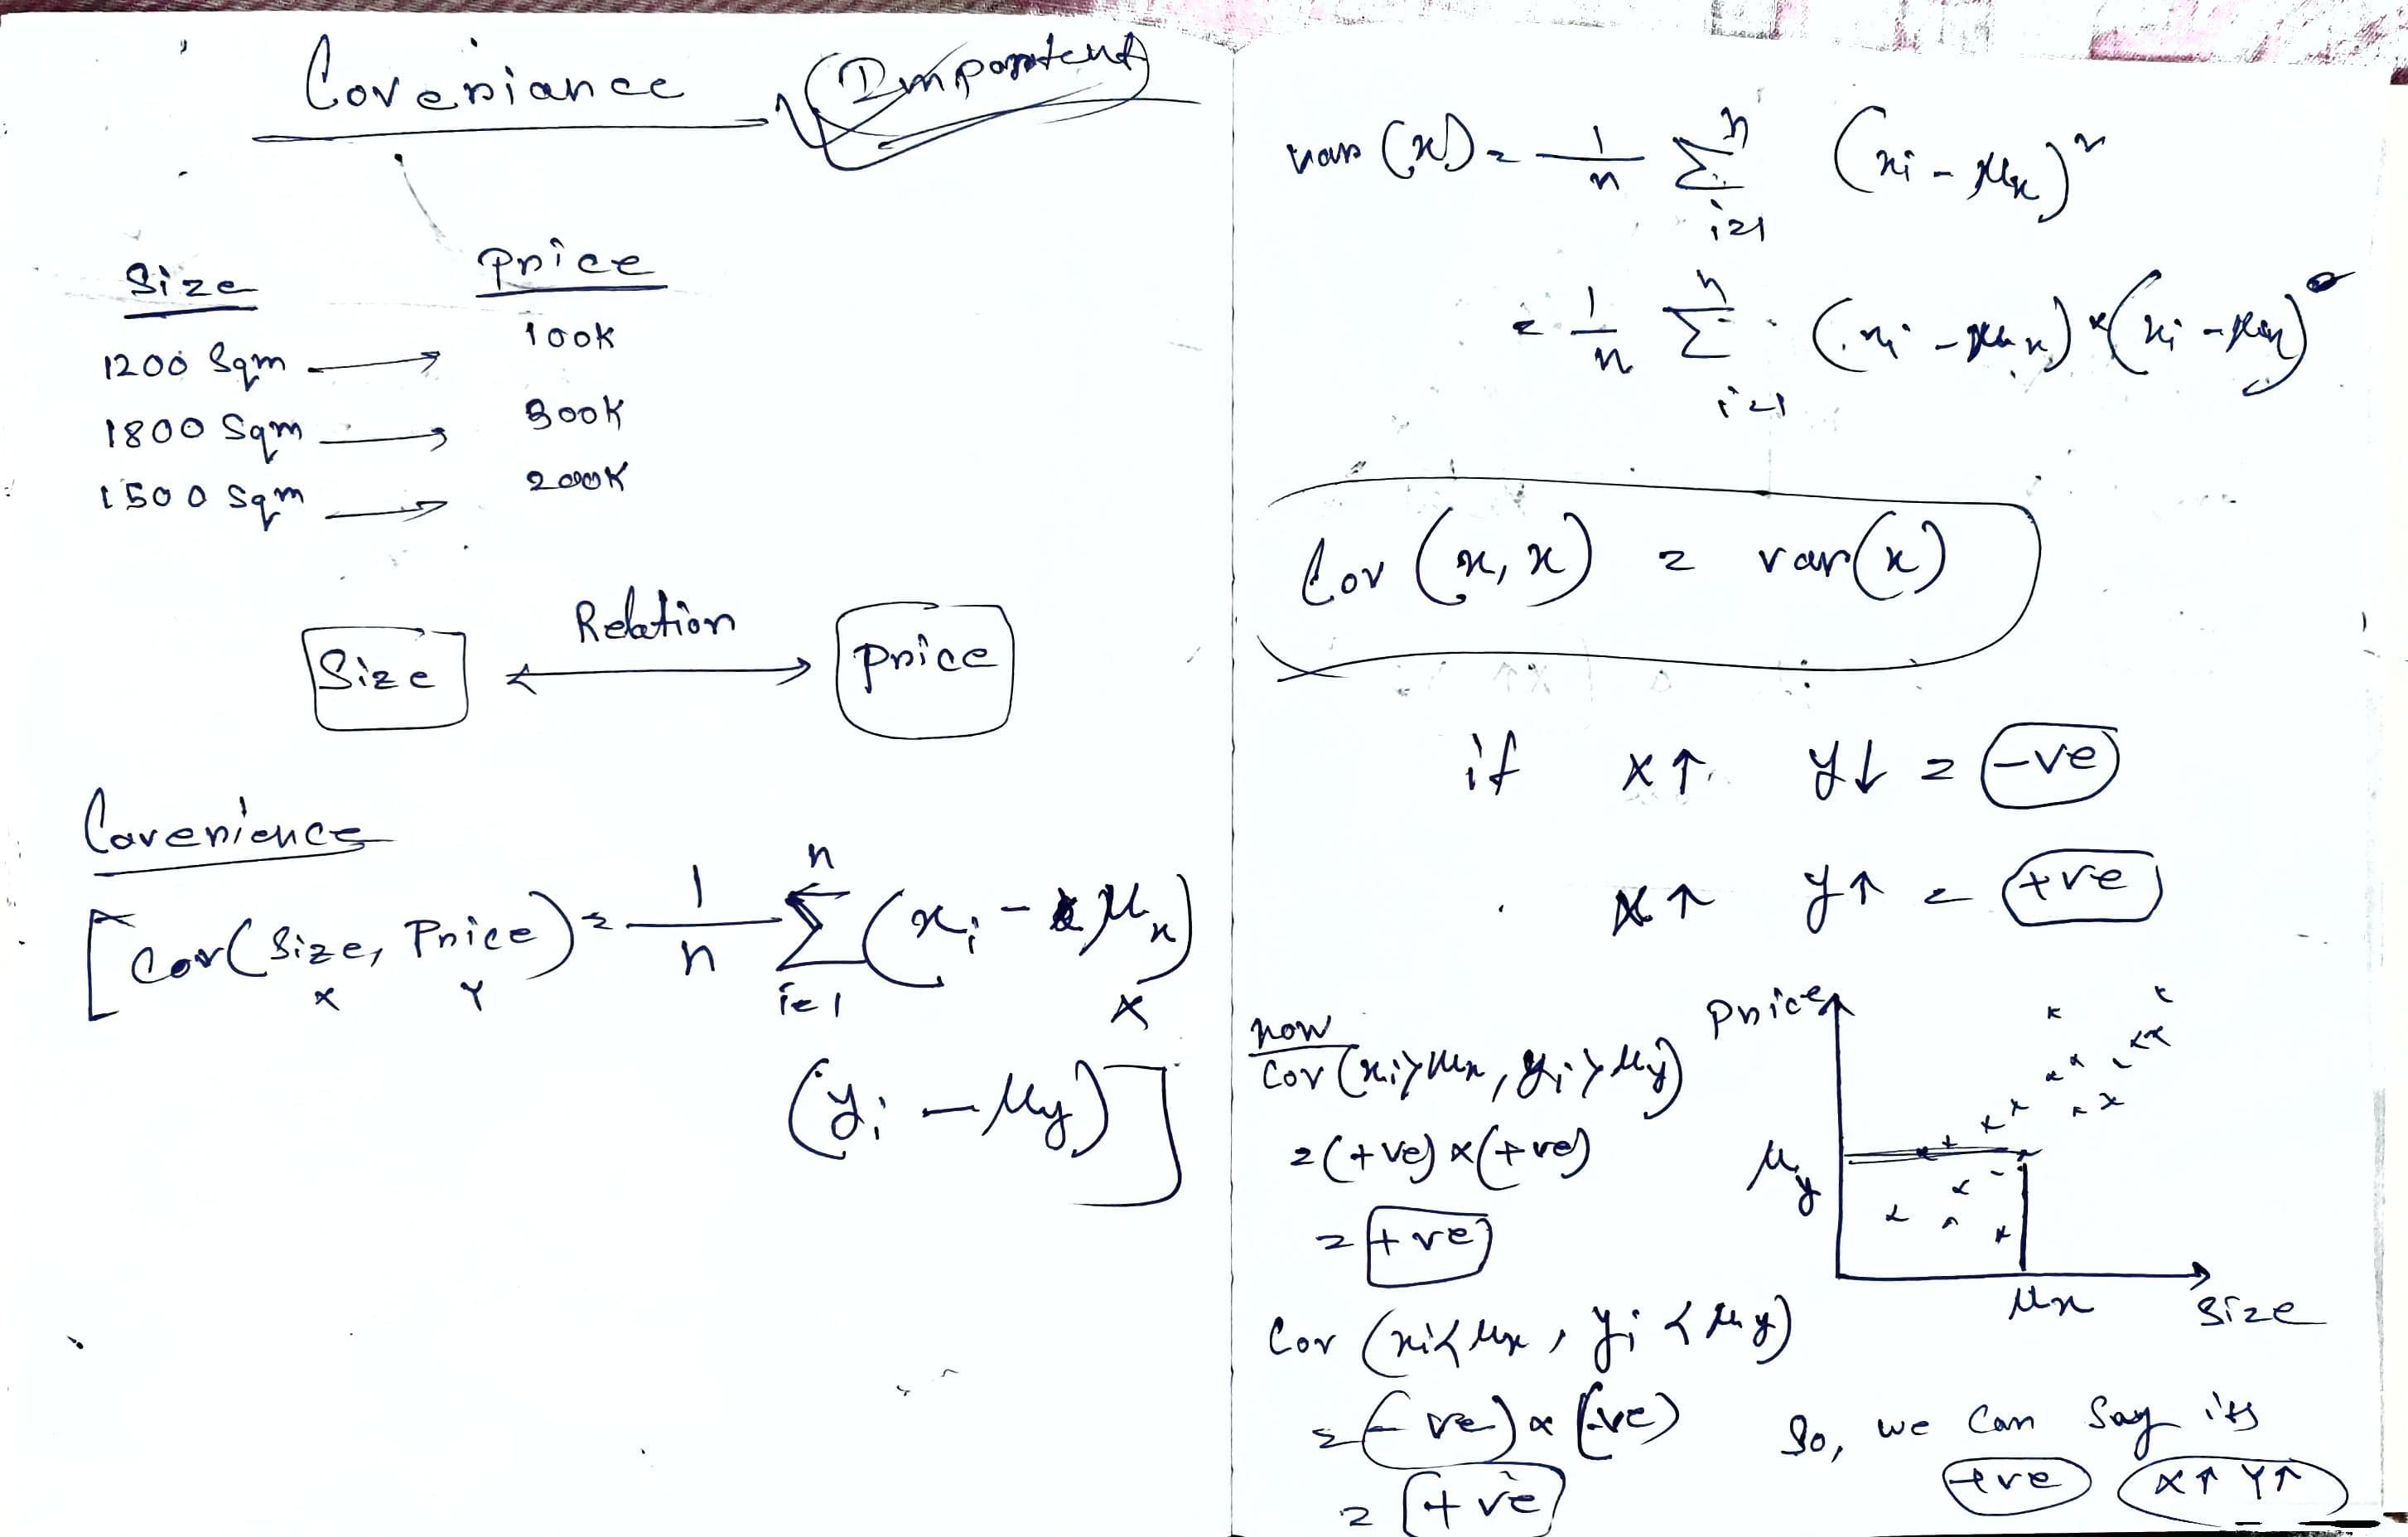 Coveriance (Important)
Size Price
1200 Sqm → 100K
1800 Sqm → 300K
1500 Sqm → 200K
Size ↔ Relation Price
Coverience
[Cov(Size, Price) = 1/n Σ (xi - μx)
x Y i=1 n x
(yi - μy)]
var (x) = 1/n Σ (xi - μx)²
n i=1
= 1/n Σ (xi - μx) × (xi - μx)
n i=1
Cov (x, x) = var(x)
if x↑ y↓ = -ve
x↑ y↑ = +ve
now
Cov (xi>μx, yi>μy)
= (+ve) × (+ve)
= +ve
Price
μy
μx Size
Cov (xi<μx, yi<μy)
= (-ve) × (-ve)
= +ve
So, we can say its
+ve X↑ Y↑